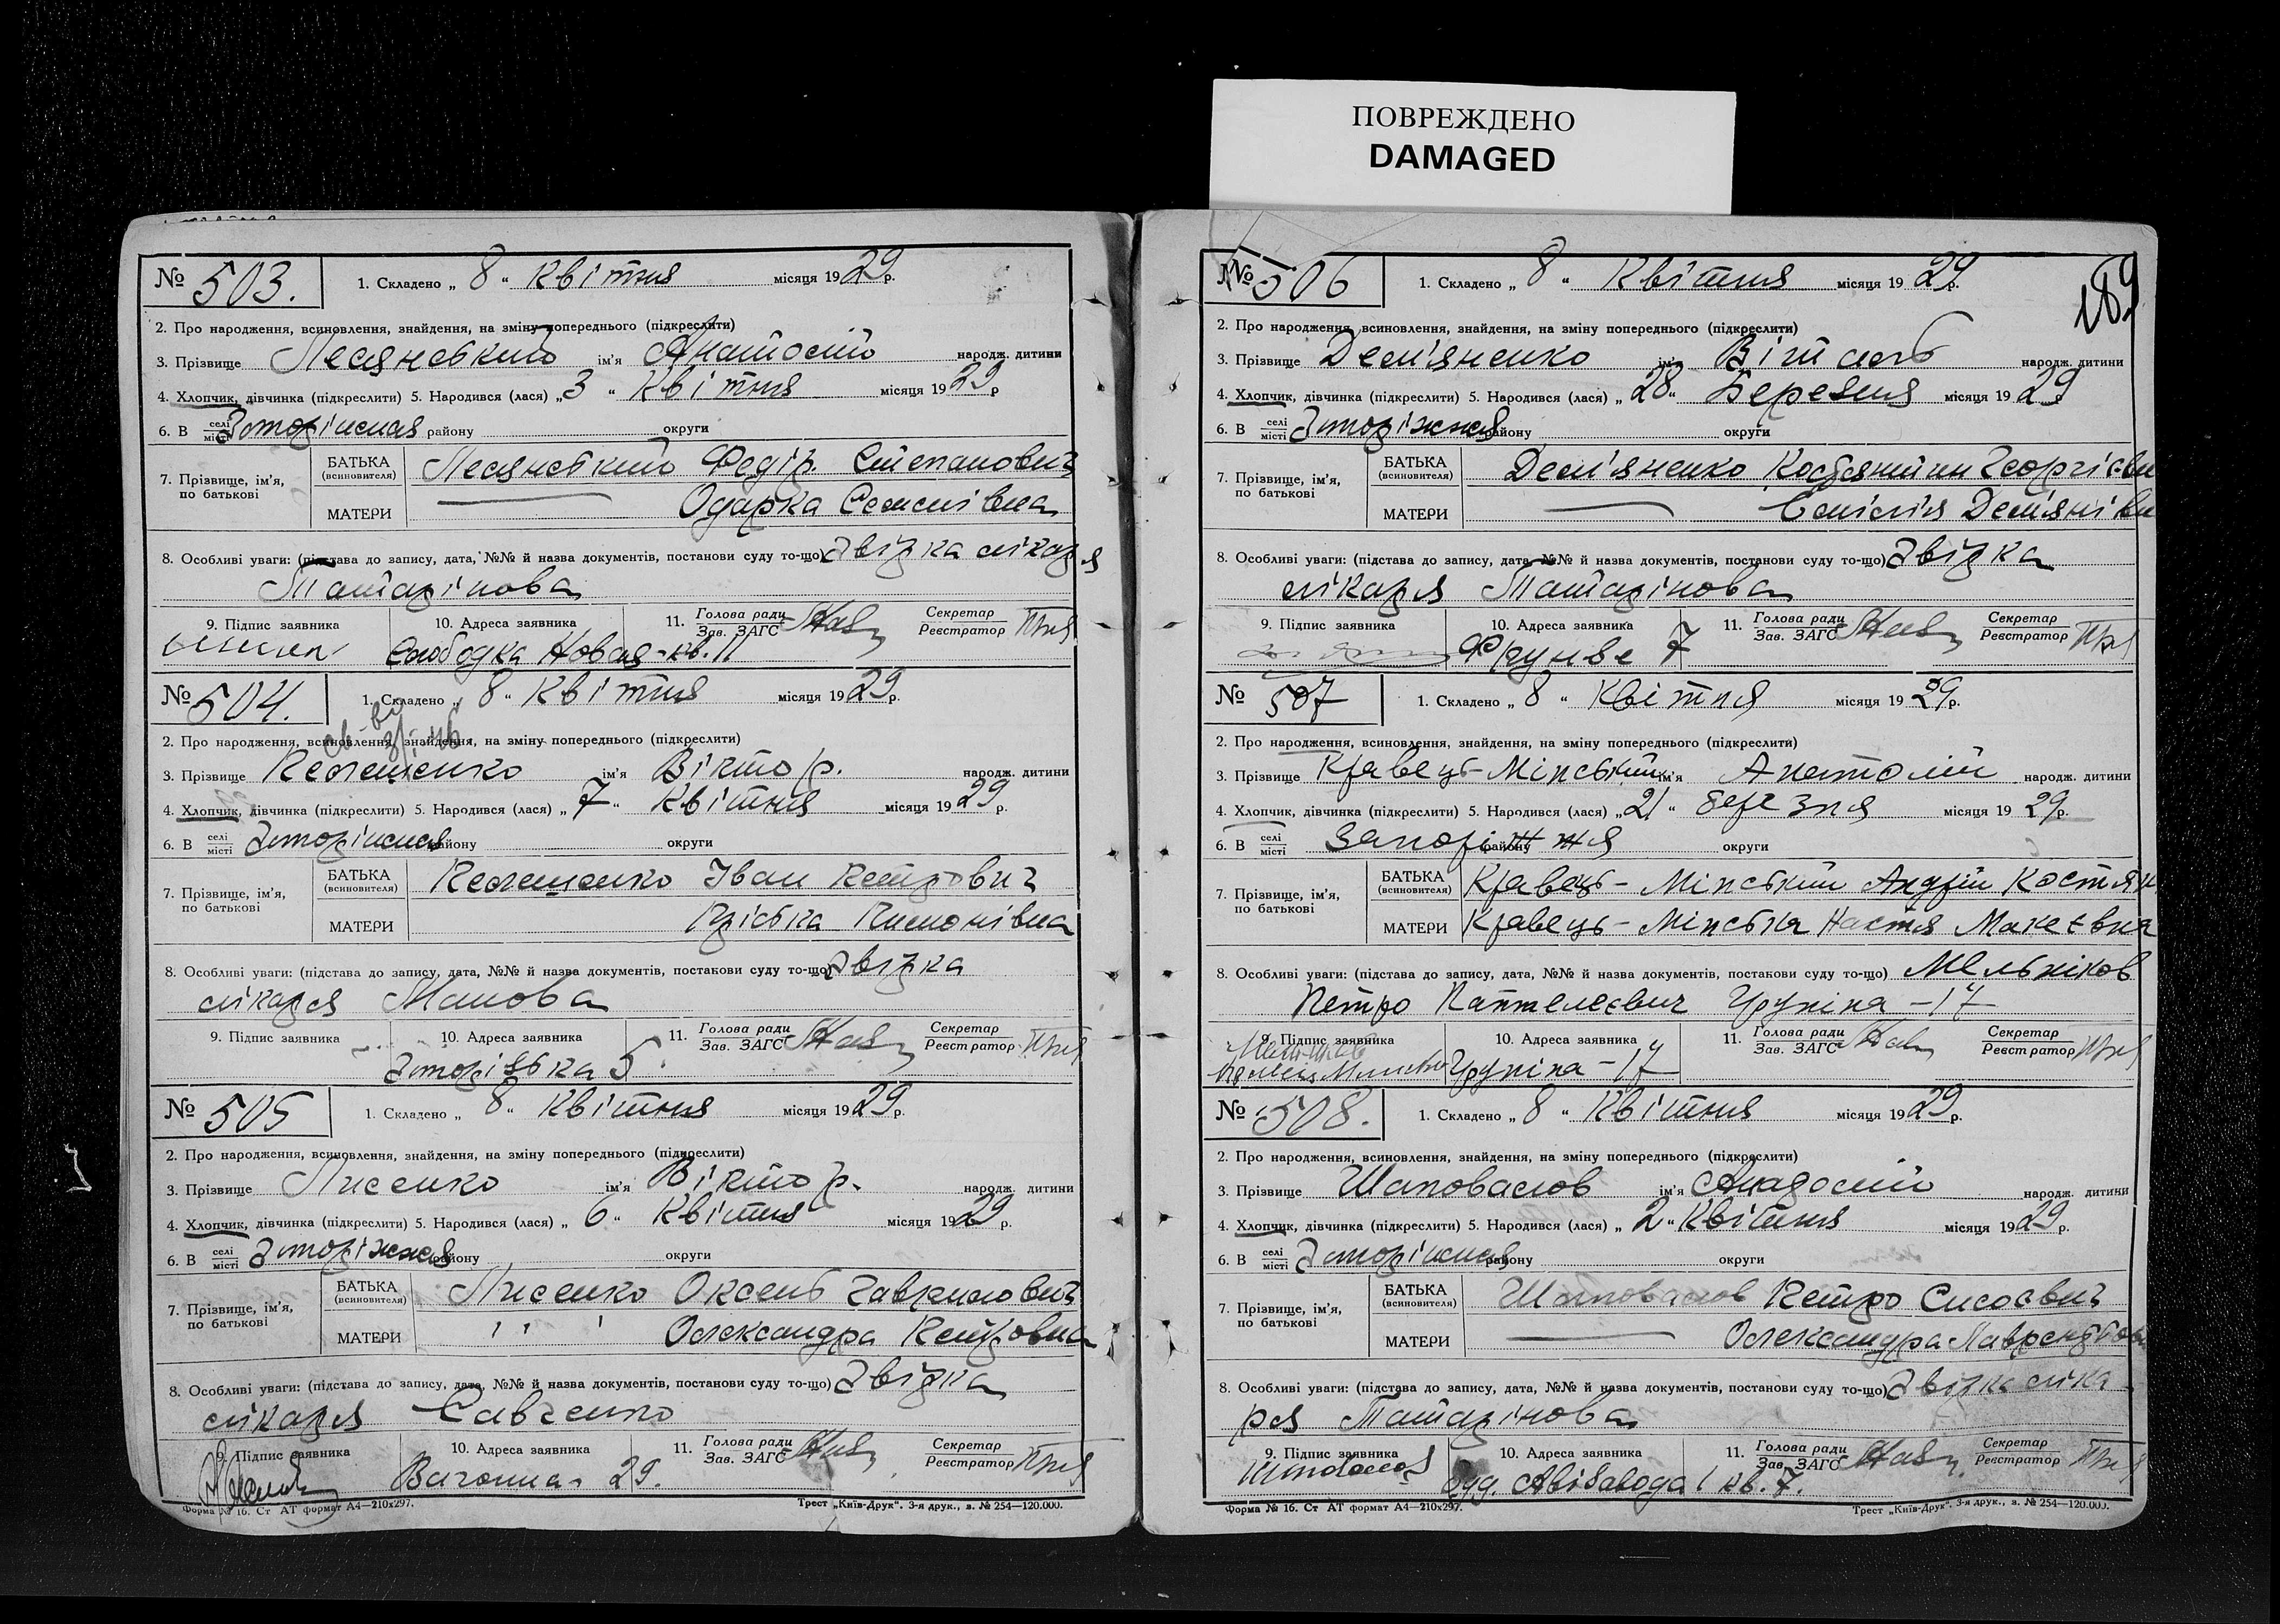 ПОВРЕЖДЕНО
DAMAGED
№ 503.
1. Складено „ 8 “ Квітня місяця 1929 р.
2. Про народження, всиновлення, знайдення, на зміну попереднього (підкреслити)
3. Прізвище Лесянський ім'я Анатолій народж. дитини
4. Хлопчик, дівчинка (підкреслити) 5. Народився (лася) „ 3 “ Квітня місяця 1929 р
6. В селі місті Запоріжжя району округи
7. Прізвище, ім'я, по батькові
БАТЬКА (всиновителя) Лесянський Федір. Степанович
МАТЕРИ Одарка Семенівна
8. Особливі уваги: (підстава до запису, дата, №№ й назва документів, постанови суду то-що) Звідка лікаря
Татарінова
9. Підпис заявника 10. Адреса заявника 11. Голова ради Зав. ЗАГС Секретар Реєстратор
Слободка Новая-кв. 11
№ 504.
1. Складено „ 8 “ Квітня місяця 1929 р.
2. Про народження, всиновлення, знайдення, на зміну попереднього (підкреслити)
3. Прізвище ім'я Віктор. народж. дитини
4. Хлопчик, дівчинка (підкреслити) 5. Народився (лася) „ 7 “ Квітня місяця 1929 р.
6. В селі місті Запоріжжя району округи
7. Прізвище, ім'я, по батькові
БАТЬКА (всиновителя) Іван Петрович
МАТЕРИ
8. Особливі уваги: (підстава до запису, дата, №№ й назва документів, постанови суду то-що) Звідка
лікаря
9. Підпис заявника 10. Адреса заявника 11. Голова ради Зав. ЗАГС Секретар Реєстратор
5
№ 505
1. Складено „ 8 “ Квітня місяця 1929 р.
2. Про народження, всиновлення, знайдення, на зміну попереднього (підкреслити)
3. Прізвище Лисенко ім'я Віктор. народж. дитини
4. Хлопчик, дівчинка (підкреслити) 5. Народився (лася) „ 6 “ Квітня місяця 1929 р.
6. В селі місті Запоріжжя району округи
7. Прізвище, ім'я, по батькові
БАТЬКА (всиновителя) Лисенко Оксень Гаврилович
МАТЕРИ Олександра Петровна
8. Особливі уваги: (підстава до запису, дата, №№ й назва документів, постанови суду то-що) Звідка
лікаря Савченко
9. Підпис заявника 10. Адреса заявника 11. Голова ради Зав. ЗАГС Секретар Реєстратор
29.
Форма № 16. Ст АТ формат А4—210х297. Трест „Київ-Друк“. 3-я друк., з. № 254—120.000.
189
№ 506
1. Складено „ 8 “ Квітня місяця 1929 р.
2. Про народження, всиновлення, знайдення, на зміну попереднього (підкреслити)
3. Прізвище Дем'яненко ім'я Віталь народж. дитини
4. Хлопчик, дівчинка (підкреслити) 5. Народився (лася) „ 28 “ Березня місяця 1929
6. В селі місті Запоріжжя району округи
7. Прізвище, ім'я, по батькові
БАТЬКА (всиновителя) Дем'яненко Костянтин Георгієви
МАТЕРИ Дем'янівн
8. Особливі уваги: (підстава до запису, дата, №№ й назва документів, постанови суду то-що) Звідка
лікаря Татарінова
9. Підпис заявника 10. Адреса заявника 11. Голова ради Зав. ЗАГС Секретар Реєстратор
Фрунзе 7
№ 507
1. Складено „ 8 “ Квітня місяця 1929 р.
2. Про народження, всиновлення, знайдення, на зміну попереднього (підкреслити)
3. Прізвище Кравець-Мінський ім'я Анатолій народж. дитини
4. Хлопчик, дівчинка (підкреслити) 5. Народився (лася) „ 21 “ березня місяця 1929 р.
6. В селі місті Запоріжжя району округи
7. Прізвище, ім'я, по батькові
БАТЬКА (всиновителя) Кравець-Мінський Андрій Костян
МАТЕРИ Кравець-Мінська Настя Макеєвна
8. Особливі уваги: (підстава до запису, дата, №№ й назва документів, постанови суду то-що) Мельніков
Петро Пантелеєвич Груніна-17
9. Підпис заявника 10. Адреса заявника 11. Голова ради Зав. ЗАГС Секретар Реєстратор
Груніна-17
№ 508.
1. Складено „ 8 “ Квітня місяця 1929 р.
2. Про народження, всиновлення, знайдення, на зміну попереднього (підкреслити)
3. Прізвище Шаповалов ім'я народж. дитини
4. Хлопчик, дівчинка (підкреслити) 5. Народився (лася) „ 2 “ Квітня місяця 1929 р.
6. В селі місті Запоріжжя району округи
7. Прізвище, ім'я, по батькові
БАТЬКА (всиновителя) Шаповалов Петро Сисоєвич
МАТЕРИ Олександра
8. Особливі уваги: (підстава до запису, дата, №№ й назва документів, постанови суду то-що) Звідка ліка
ря Татарінова
9. Підпис заявника 10. Адреса заявника 11. Голова ради Зав. ЗАГС Секретар Реєстратор
Авіозавода 1 кв. 7.
Форма № 16. Ст АТ формат А4—210х297. Трест „Київ-Друк“. 3-я друк., з. № 254—120.000.